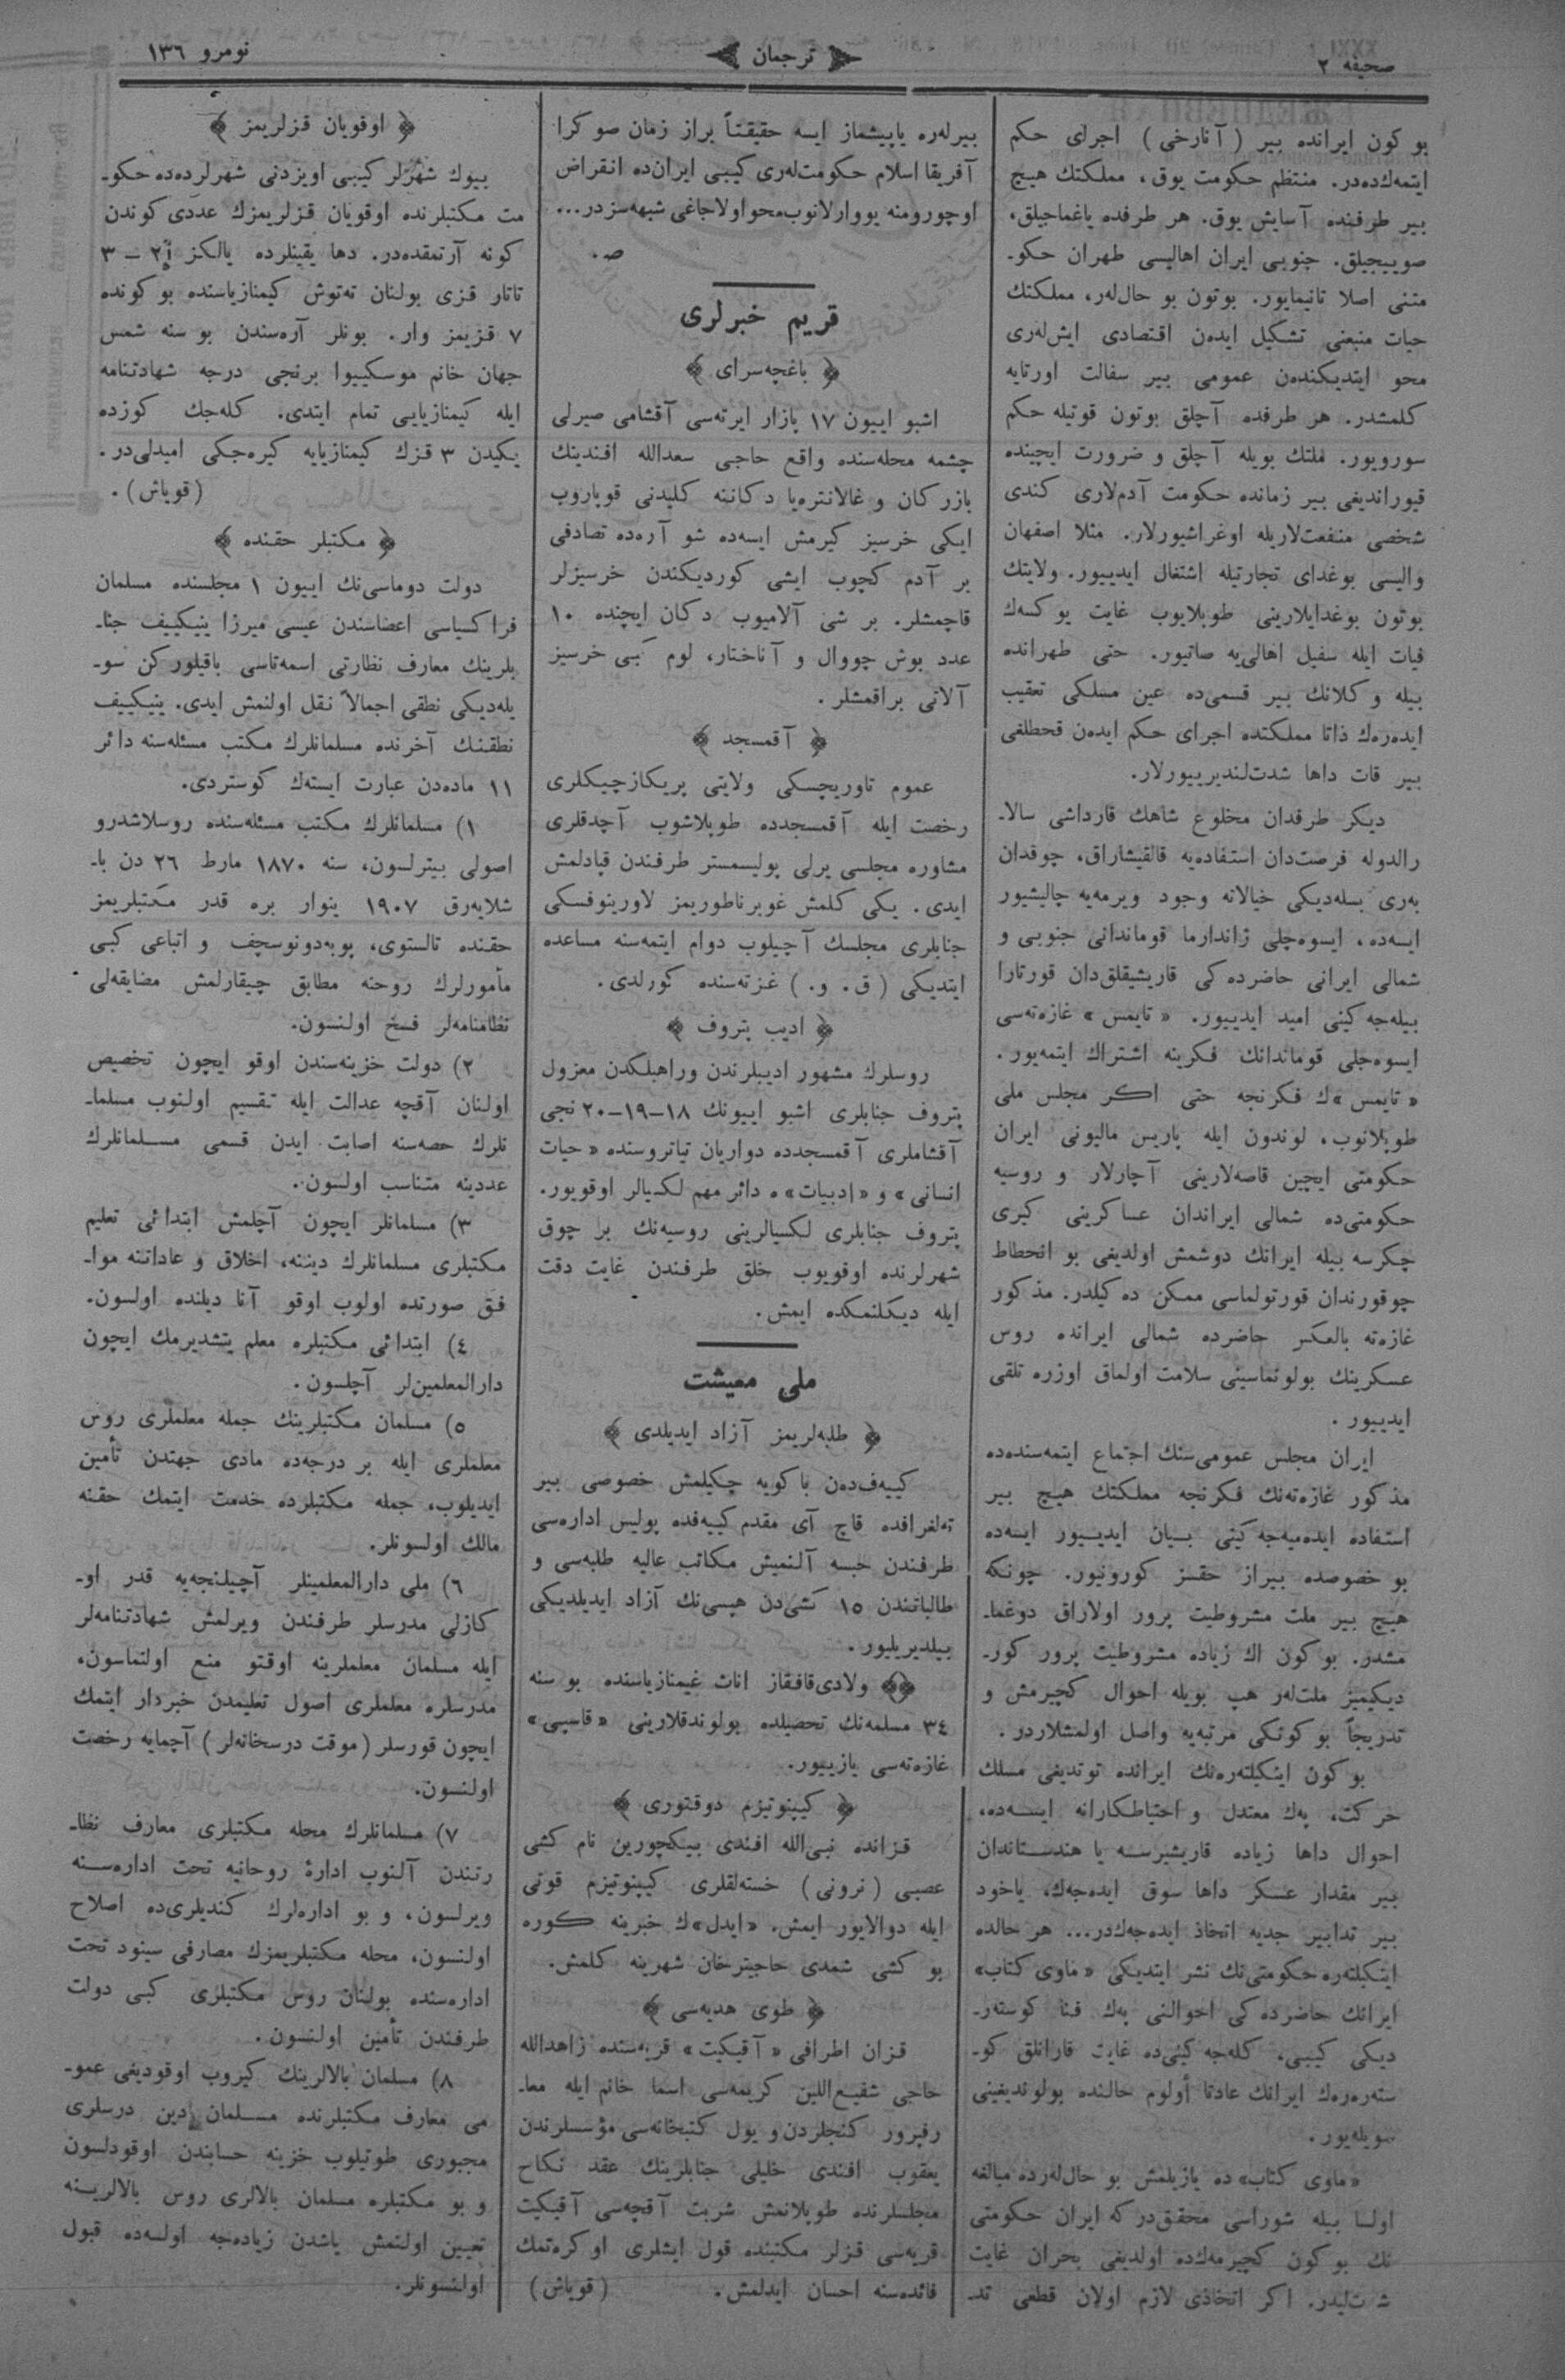 صحیفه ٢
ترجمان
نومرو ١٣٦
بو كون ایرانده بیر (آنارخی) اجرای حكم
ایتمه‌كده‌در. منتظم حكومت یوق، مملكتك هیچ
بیر طرفنده آسایش یوق. هر طرفده یاغماجیلق،
صوییجیلق. جنوبی ایران اهالیسی طهران حكو-
متنی اصلا تانیمایور. بوتون بو حال‌لەر، مملكتك
حیات منبعنی تشكیل ایدەن اقتصادی ایش‌لەری
محو ایتدیكندەن عمومی بیر سفالت اورتایه
كلمشدر. هر طرفده آچلق بوتون قوتیله حكم
سورویور. ملتك بویله آچلق و ضرورت ایچینده
قیوراندیغی بیر زمانده حكومت آدم‌لاری كندی
شخصی منفعت‌لاریله اوغراشیورلار. مثلا اصفهان
والیسی بوغدای تجارتیله اشتغال ایدییور. ولایتك
بوتون بوغدایلارینی طوپلایوب غایت یوكسەك
فیات ایله سفیل اهالی‌یه صاتیور. حتی طهرانده
بیله وكلانك بیر قسمی‌ده عین مسلكی تعقیب
ایدەرەك ذاتا مملكتده اجرای حكم ایدەن قحطلغی
بیر قات داها شدت‌لندیرییورلار.
دیكر طرفدان مخلوع شاهك قارداشی سالا-
رالدوله فرصت‌دان استفاده‌یه قالقیشاراق، چوقدان
بەری بسله‌دیكی خیالاته وجود ویرمه‌یه چالیشیور
ایسه‌ده، ایسوەچلی ژاندارما قوماندانی جنوبی و
شمالی ایرانی حاضرده كی قاریشیقلق‌دان قورتارا
بیله‌جه كینی امید ایدییور. «تایمس» غازەته‌سی
ایسوەچلی قوماندانك فكرینه اشتراك ایتمه‌یور.
«تایمس»ك فكرنجه حتی اكر مجلس ملی
طوپلانوب، لوندون ایله پاریس مالیونی ایران
حكومتی ایچین قاصه‌لارینی آچارلار و روسیه
حكومتی‌ده شمالی ایراندان عساكرینی كیری
چكرسه بیله ایرانك دوشمش اولدیغی بو انحطاط
چوقورندان قورتولماسی ممكن ده‌كیلدر. مذكور
غازەته بالعكس حاضرده شمالی ایرانده روس
عسكرینك بولونماسینی سلامت اولماق اوزره تلقی
ایدییور.
ایران مجلس عمومی‌سنك اجتماع ایتمه‌سنده‌ده
مذكور غازەته‌نك فكرنجه مملكتك هیچ بیر
استفاده ایده‌میه‌جه كینی بیان ایدییور ایسه‌ده
بو خصوصده بیراز حقسز كورونیور. چونكه
هیچ بیر ملت مشروطیت پرور اولاراق دوغما-
مشدر. بو كون اك زیاده مشروطیت پرور كور-
دیكیمیز ملت‌لەر هپ بویله احوال كچیرمش و
تدریجاً بو كونكی مرتبه‌یه واصل اولمشلاردر.
بو كون اینكیلتەرەنك ایرانده توتدیغی مسلك
حركت، پەك معتدل و احتیاطكارانه ایسه‌ده،
احوال داها زیاده قاریشیرسه یا هندستاندان
بیر مقدار عسكر داها سوق ایده‌جەك، یاخود
بیر تدابیر جدیه اتخاذ ایده‌جەكدر... هر حالده
اینكیلتەره حكومتی‌نك نشر ایتدیكی «ماوی كتاب»
ایرانك حاضرده كی احوالنی پەك فنا كوستەر-
دیكی كیبی، كله‌جه كینی‌ده غایت قارانلق كو-
ستەرەرەك ایرانك عادتا أولوم حالنده بولوندیغینی
سویله‌یور.
«ماوی كتاب»ده یازیلمش بو حال‌لەرده مبالغه
اولسا بیله شوراسی محقق‌در كه ایران حكومتی
نك بو كون كچیرمه‌كده اولدیغی بحران غایت
شدت‌لیدر. اكر اتخاذی لازم اولان قطعی تد-
بیرلەره یاپیشماز ایسه حقیقتاً براز زمان صوكرا
آفریقا اسلام حكومت‌لەری كیبی ایران‌ده انقراض
اوچورومنه یووارلانوب محو اولاجاغی شبهه‌سزدر...
ص.
قریم خبرلری
﴿ باغچه‌سرای ﴾
اشبو اییون ١٧ بازار ایرته‌سی آقشامی صیرلی
چشمه محله‌سنده واقع حاجی سعدالله افندینك
بازركان و غالانتره‌یا دكاننه كلیدنی قوپاروب
ایكی خرسیز كیرمش ایسه‌ده شو آره‌ده تصادفی
بر آدم كچوب ایشی كوردیكندن خرسیزلر
قاچمشلر. بر شی آلامیوب دكان ایچنده ١٠
عدد بوش چووال و آناختار، لوم كبی خرسیز
آلاتی براقمشلر.
﴿ آقمسجد ﴾
عموم تاوریچسكی ولایتی پریكازچیكلری
رخصت ایله آقمسجدده طوپلاشوب آچدقلری
مشاوره مجلسی یرلی پولیسمستر طرفندن قپادلمش
ایدی. یكی كلمش غوبرناطوریمز لاورینوفسكی
جنابلری مجلسك آچیلوب دوام ایتمه‌سنه مساعده
ایتدیكی (ق. و.) غزته‌سنده كورلدی.
﴿ ادیب پتروف ﴾
روسلرك مشهور ادیبلرندن و راهبلكدن معزول
پتروف جنابلری اشبو اییونك ١٨-١٩-٢٠ نجی
آقشاملری آقمسجدده دواریان تیاتروسنده «حیات
انسانی» و «ادبیات»ه دائر مهم لكسیالر اوقویور.
پتروف جنابلری لكسیالرینی روسیه‌نك بر چوق
شهرلرنده اوقویوب خلق طرفندن غایت دقت
ایله دیكلنمكده ایمش.
ملی معیشت
﴿ طلبه‌لریمز آزاد ایدیلدی ﴾
كییه‌ف‌دەن باكویه چكیلمش خصوصی بیر
تەلغرافده قاچ آی مقدم كییه‌فده پولیس اداره‌سی
طرفندن حبسه آلنمیش مكاتب عالیه طلبه‌سی و
طالباتندن ١٥ كشی‌دن هپسی‌نك آزاد ایدیلدیكی
بیلدیریلیور.
ولادی‌قافقاز اناث غیمنازیاسنده بو سنه
٣٤ مسلمه‌نك تحصیلده بولوندقلارینی «قاسپی»
غازەته‌سی یازییور.
﴿ كیپنوتیزم دوقتوری ﴾
قزانده نبی‌الله افندی بیكچورین نام كشی
عصبی (نرونی) خسته‌لقلری كیپنوتیزم قوتی
ایله دوالایور ایمش. «ایدل»ك خبرینه كوره
بو كشی شمدی حاجیترخان شهرینه كلمش.
﴿ طوی هدیه‌سی ﴾
قزان اطرافی «آقیكیت» قریه‌سنده زاهدالله
حاجی شفیع‌اللین كریمه‌سی اسما خانم ایله معا-
رفپرور كنجلردن و یول كتبخانه‌سی مؤسسلرندن
یعقوب افندی خلیلی جنابلرینك عقد نكاح
مجلسلرنده طوپلانمش شربت آقچه‌سی آقیكیت
قریه‌سی قزلر مكتبنده قول ایشلری اوكره‌تمك
فائده‌سنه احسان ایدلمش. (قویاش)
﴿ اوقویان قزلریمز ﴾
بیوك شهرلر كیبی اویزدنی شهرلرده‌ده حكو-
مت مكتبلرنده اوقویان قزلریمزك عددی كوندن
كونه آرتمقده‌در. دها یقینلرده یالكز ٢ - ٣
تاتار قزی بولنان ته‌توش كیمنازیاسنده بو كونده
٧ قزیمز وار. بونلر آره‌سندن بو سنه شمس
جهان خانم موسكییوا برنجی درجه شهادتنامه
ایله كیمنازیایی تمام ایتدی. كله‌جك كوزده
یكیدن ٣ قزك كیمنازیایه كیره‌جكی امیدلی‌در.
(قویاش).
﴿ مكتبلر حقنده ﴾
دولت دوماسی‌نك اییون ١ مجلسنده مسلمان
فراكسیاسی اعضاسندن عیسی میرزا ینیكییف جنا-
بلرینك معارف نظارتی اسمه‌تاسی باقیلوركن سو-
یله‌دیكی نطقی اجمالاً نقل اولنمش ایدی. ینیكییف
نطقنك آخرنده مسلمانلرك مكتب مسئله‌سنه دائر
١١ ماده‌دن عبارت ایستەك كوستردی.
١) مسلمانلرك مكتب مسئله‌سنده روسلاشدرو
اصولی بیترلسون، سنه ١٨٧٠ مارط ٢٦ دن با-
شلایه‌رق ١٩٠٧ ینوار بره قدر مكتبلریمز
حقنده تالستوی، پوبه‌دونوسچف و اتباعی كبی
مأمورلرك روحنه مطابق چیقارلمش مضایقه‌لی
نظامنامه‌لر فسخ اولنسون.
٢) دولت خزینه‌سندن اوقو ایچون تخصیص
اولنان آقچه عدالت ایله تقسیم اولنوب مسلما-
نلرك حصه‌سنه اصابت ایدن قسمی مسلمانلرك
عددینه متناسب اولسون.
٣) مسلمانلر ایچون آچلمش ابتدائی تعلیم
مكتبلری مسلمانلرك دیننه، اخلاق و عاداتنه موا-
فق صورتده اولوب اوقو آنا دیلنده اولسون.
٤) ابتدائی مكتبلره معلم یتشدیرمك ایچون
دارالمعلمین‌لر آچلسون.
٥) مسلمان مكتبلرینك جمله معلملری روس
معلملری ایله بر درجه‌ده مادی جهتدن تأمین
ایدیلوب، جمله مكتبلرده خدمت ایتمك حقنه
مالك اولسونلر.
٦) ملی دارالمعلمینلر آچیلنجه‌یه قدر او-
كازلی مدرسلر طرفندن ویرلمش شهادتنامه‌لر
ایله مسلمان معلملرینه اوقتو منع اولنماسون،
مدرسلره معلملری اصول تعلیمدن خبردار ایتمك
ایچون قورسلر (موقت درسخانه‌لر) آچمایه رخصت
اولنسون.
٧) مسلمانلرك محله مكتبلری معارف نظا-
رتندن آلنوب ادارۀ روحانیه تحت اداره‌سنه
ویرلسون، و بو اداره‌لرك كندیلری‌ده اصلاح
اولنسون، محله مكتبلریمزك مصارفی سینود تحت
اداره‌سنده بولنان روس مكتبلری كبی دولت
طرفندن تأمین اولنسون.
٨) مسلمان بالالرینك كیروب اوقودیغی عمو-
می معارف مكتبلرنده مسلمان دین درسلری
مجبوری طوتیلوب خزینه حسابندن اوقودلسون
و بو مكتبلره مسلمان بالالری روس بالالرینه
تعیین اولنمش یاشدن زیاده‌جه اولسه‌ده قبول
اولنسونلر.